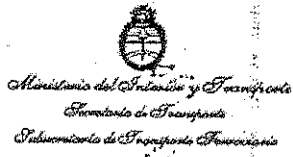 Ministerio del Interior y Transporte
Secretaría de Transporte
Subsecretaría de Transporte Ferroviario